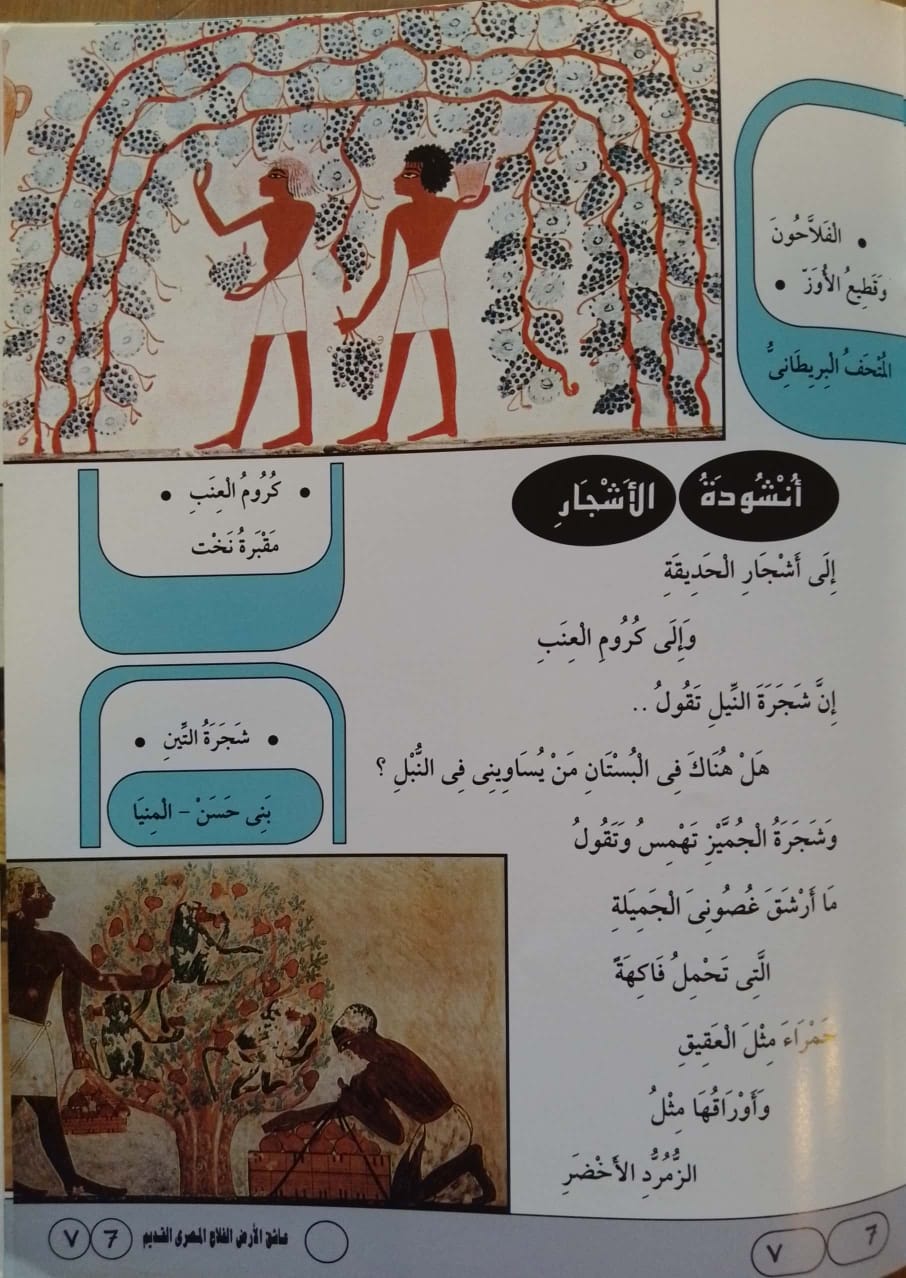 • الفَلاَّحُونَ
وَقَطِيعُ الأُوَزّ •
المُتْحَفُ الْبِرِيطَانِىُّ
• كُرُومُ الْعِنَبِ •
مَقْبَرةُ نَخْت
• شَجَرَةُ التِّينِ •
بَنِى حَسَنْ - الْمِنيَا
أُنْشُودَةُ الأَشْجَارِ
إِلَى أَشْجَارِ الْحَدِيقَةِ
وَإِلَى كُرُومِ الْعِنَبِ
إِنَّ شَجَرَةَ النِّيلِ تَقُولُ ..
هَلْ هُنَاكَ فِى الْبُسْتَانِ مَنْ يُسَاوِينِى فِى النُّبْلِ ؟
وَشَجَرَةُ الْجُمَّيْزِ تَهْمِسُ وَتَقُولُ
مَا أَرْشَقَ غُصُونِىَ الْجَمِيلَةِ
الَّتِى تَحْمِلُ فَاكِهَةً
حَمْرَاءَ مِثْلَ الْعَقِيقِ
وَأَوْرَاقُهَا مِثْلُ
الزُّمُرُّدِ الأَخْضَرَ
عاشق الأرض الفلاح المصرى القديم 7 ٧
7 ٧